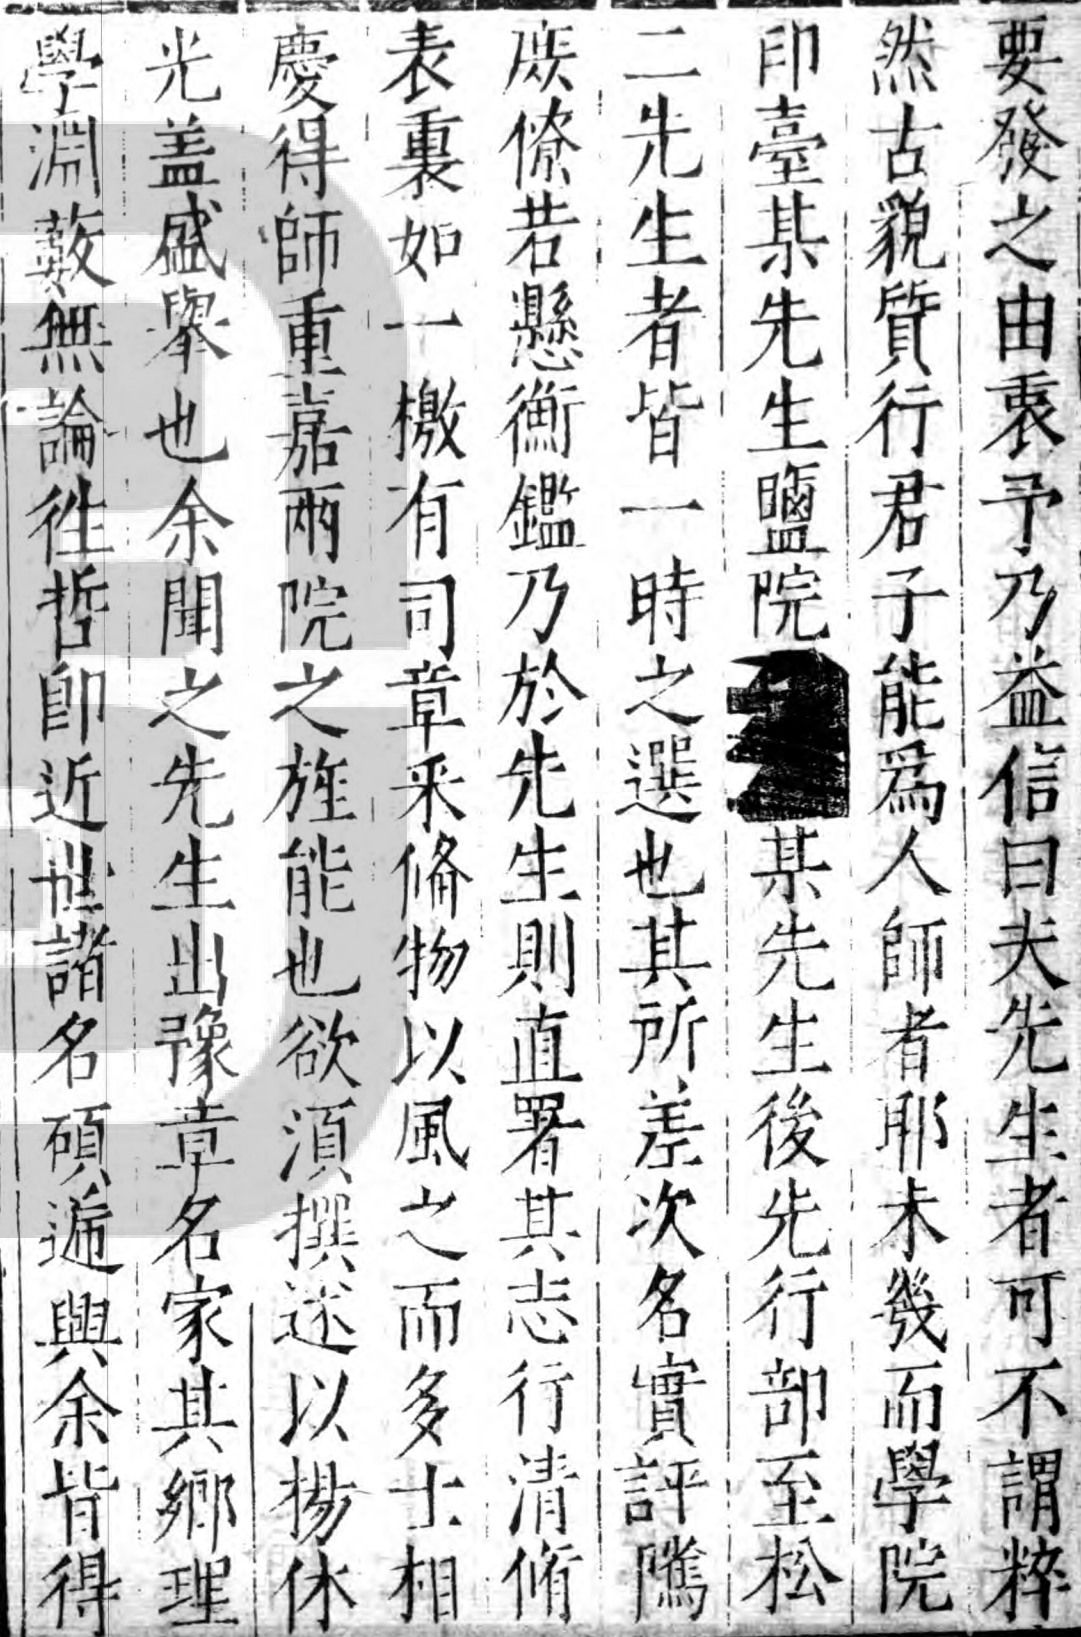 要發之由衷予乃益信曰夫先生者可不謂粹
然古貌質行君子能爲人師者耶未幾而學院
印臺某先生鹽院某先生後先行部至松
二先生者皆一時之選也其所差次名實評隲
庶僚若懸衡鑑乃於先生則直署其志行清脩
表裏如一檄有司章采俻物以風之而多士相
慶得師重嘉兩院之旌能也欲須撰述以揚休
光盖盛舉也余聞之先生出豫章名家其鄉理
學淵藪無論徃哲卽近世諸名碩遞興余皆得